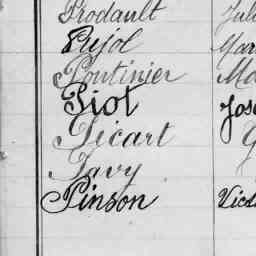 Prodault Juli
Pujol Mar
Poutinier Ma
Piot Jose
Picart G
Pavy
Pinson Vict